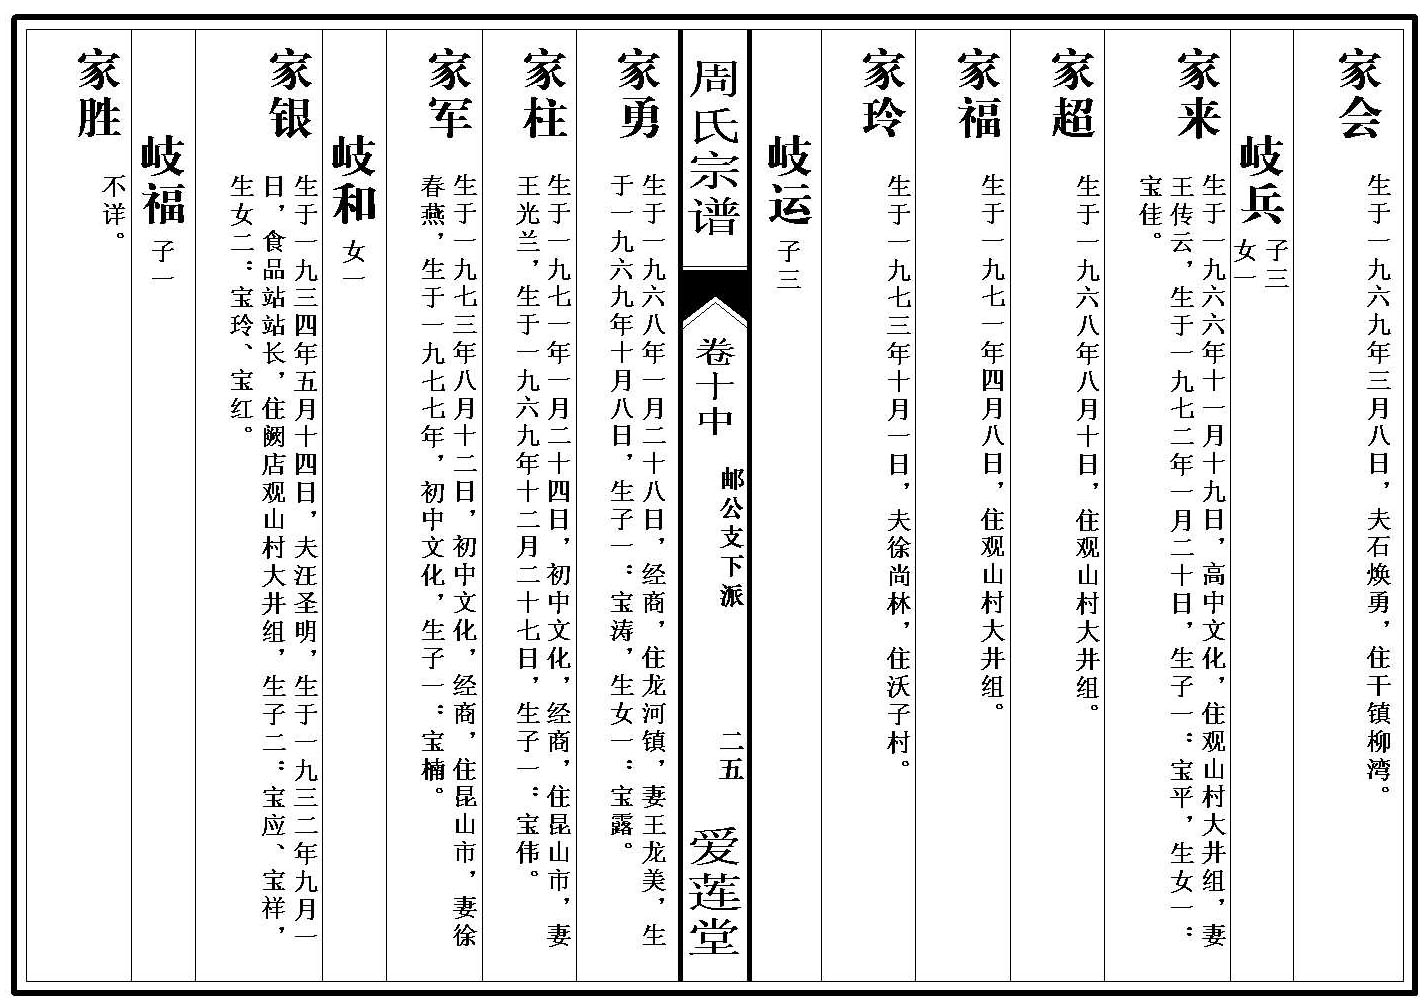 家会
生于一九六九年三月八日，夫石焕勇，住干镇柳湾。
岐兵
子三
女一
家来
生于一九六六年十一月十九日，高中文化，住观山村大井组，妻
王传云，生于一九七二年一月二十日，生子一：宝平，生女一：
宝佳。
家超
生于一九六八年八月十日，住观山村大井组。
家福
生于一九七一年四月八日，住观山村大井组。
家玲
生于一九七三年十月一日，夫徐尚林，住沃子村。
岐运
子三
周氏宗谱
卷十中
邮公支下派
二五
爱莲堂
家勇
生于一九六八年一月二十八日，经商，住龙河镇，妻王龙美，生
于一九六九年十月八日，生子一：宝涛，生女一：宝露。
家柱
生于一九七一年一月二十四日，初中文化，经商，住昆山市，妻
王光兰，生于一九六九年十二月二十七日，生子一：宝伟。
家军
生于一九七三年八月十二日，初中文化，经商，住昆山市，妻徐
春燕，生于一九七七年，初中文化，生子一：宝楠。
岐和
女一
家银
生于一九三四年五月十四日，夫汪圣明，生于一九三二年九月一
日，食品站站长，住阚店观山村大井组，生子二：宝应、宝祥，
生女二：宝玲、宝红。
岐福
子一
家胜
不详。